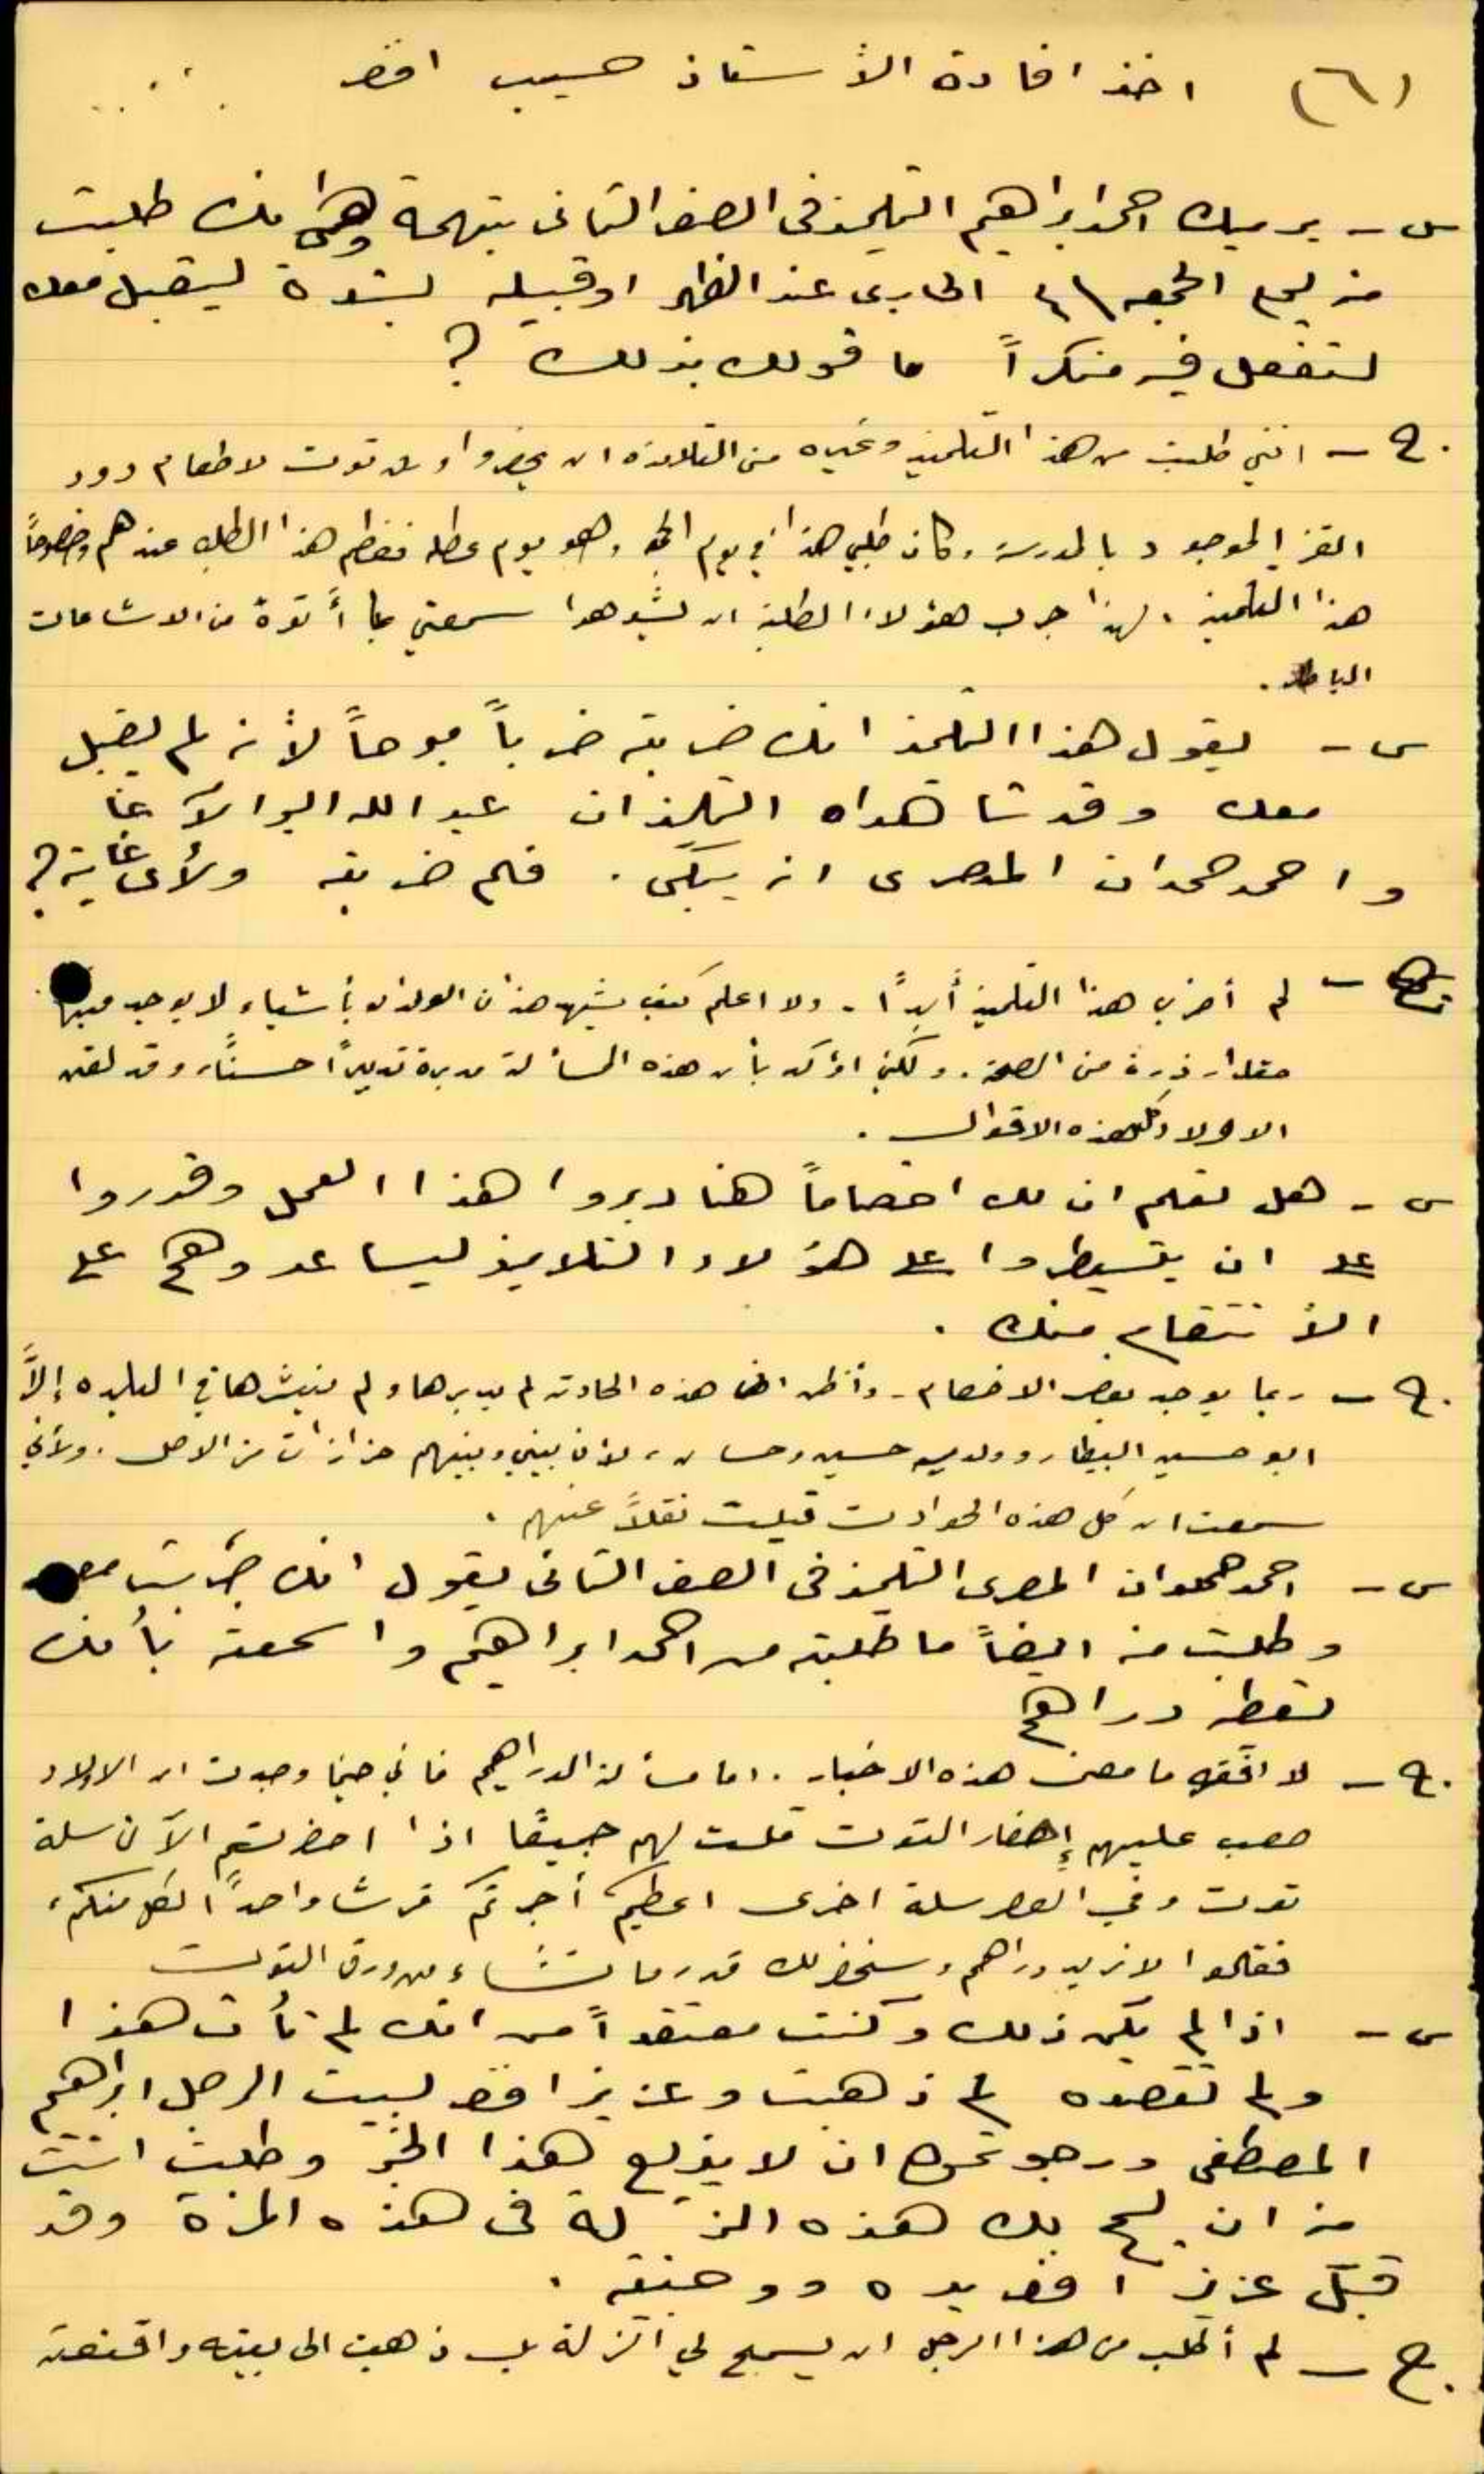 (٦) اخذ افادة الأستاذ حسيب افند
س - يرميك احمد ابراهيم التلميذ فى الصف الثانى بتهمة وهى انك طلبت
منه يوم الجمعه الجارى عند الظهر او قبيله بشدة ليقبل معك
لتفعل فيه منكراً ما قولك بذلك ؟
ج - انني طلبت من هذا التلميذ وغيره من التلامذه ان يحضروا ورق توت لاطعام دود
القز الموجود بالمدرسة وكان طلبي هذا في يوم الجمعة وهو يوم عطلة فعظم هذا الطلب عندهم وخصوصاً
هذا التلميذ . لهذا جرب هؤلاء الطلبة ان يشوهوا سمعتي بما أتوه من الاشاعات
الباطلة .
س - يقول هذا التلميذ انك ضربته ضرباً مبرحاً لأنه لم يقبل
معك وقد شاهداه التلميذان عبد الله ابو الآغا
واحمد حمدان المصرى انه يبكى . فلم ضربته ولأى غاية ؟
ج - لم أضرب هذا التلميذ أبداً - ولا اعلم كيف يشهد هذان الولدان بأشياء لا يوجد فيها
مقدار ذرة من الصحة . ولكني اؤكد بأن هذه المسألة مدبرة تدبيراً حسناً ، وقد لقن
الاولاد كل هذه الاقوال .
س - هل تعلم ان لك اخصاماً هنا دبروا هذا العمل وقرروا
على ان يسيطروا على هؤلاء التلاميذ ليساعدوهم على
الأنتقام منك .
ج - ربما يوجد بعض الاخصام - وأظن ان هذه الحادثه لم يدبرها ولم ينشرها في البلده إلاَّ
ابو حسين البيطار وولديه حسين وحسان ، لان بيني وبينهم حزازات من الاصل . ولأني
سمعت ان كل هذه الحوادث قيلت نقلاً عنهم .
س - احمد حمدان المصرى التلميذ فى الصف الثانى يقول انك جربت معه
وطلبت منه ايضاً ما طلبته من احمد ابراهيم واسمعته بأنك
تعطه دراهم
ج - لا افقه ما معنى هذه الاخبار . اما مسألة الدراهم فاني حينما وجدت ان الاولاد
صعب عليهم إحضار التوت قلت لهم جميعًا اذا احضرتم الآن سلة
توت وفي العصر سلة اخرى اعطيكم أجرتكم قرشا واحداً لكل منكم ،
فقالوا لا نريد دراهم وسنحضر لك قدر ما تشاء من ورق التوت
س - اذا لم يكن ذلك وكنت معتقداً من انك لم تأت هذا
ولم تقصده لم ذهبت وعزيز افند لبيت الرجل ابراهيم
المصطفى ورجوتموه ان لا يذيع هذا الخبر وطلبت انت
منه ان يسمح لك هذه الزلة فى هذه المرة وقد
قبّل عزيز افند يده ووجنته .
ج - لم أطلب من هذا الرجل ان يسمح لي الزلة بل ذهبت الى بيته واقنعته